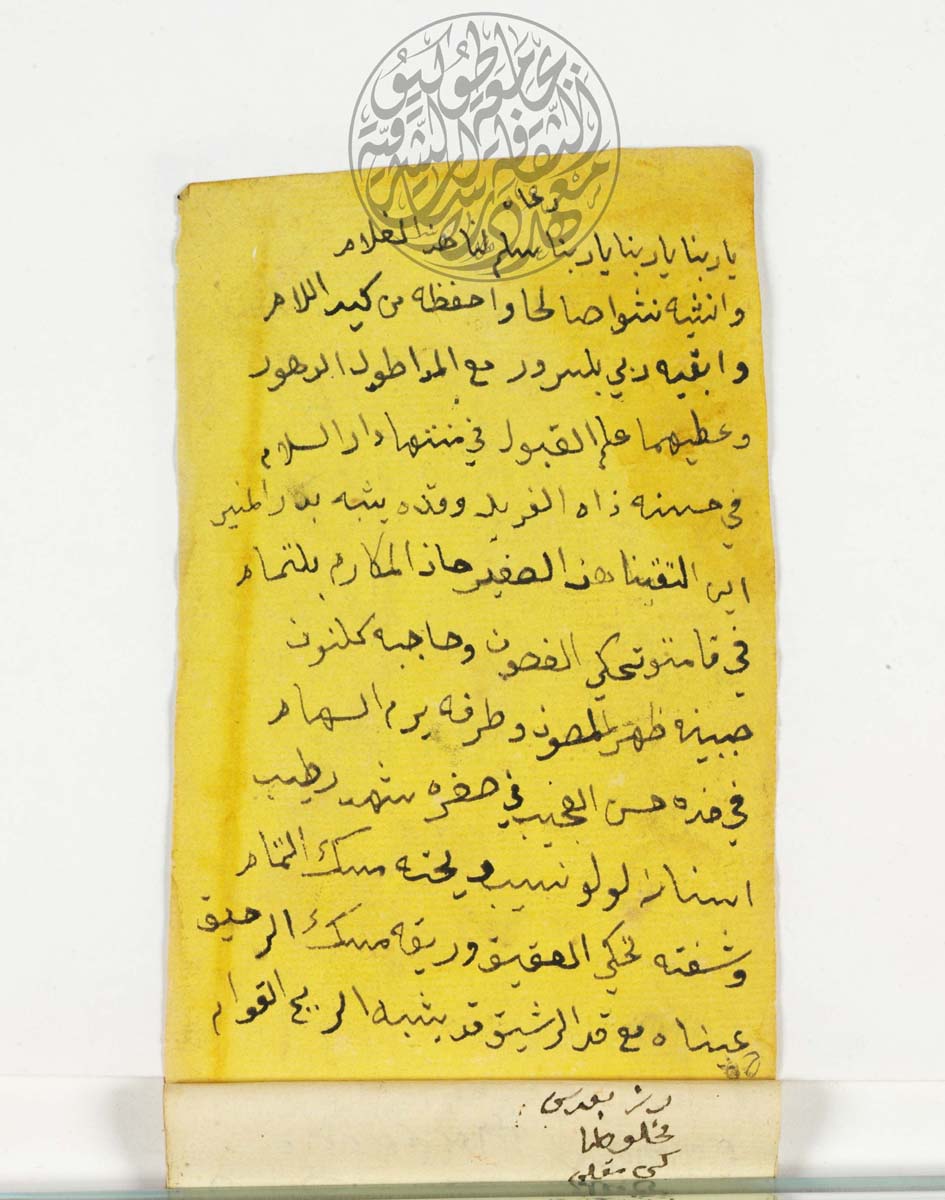 دعاه
يا ربنا يا ربنا يا ربنا سلم لنا هذ الغلام
وانشيه نشوا صالحا واحفظه من كيد اللام
وابقيه ربي بلسرور مع المدا طول الدهور
وعطيهما علم القبول في منتها دار السلام
في حسنه ذاه الفريد وقده يشبه بدار المنير
اين التقينا هذ الصغير حاذ المكارم بلتمام
في قامتو تحكي الغصون وحاجبه كلنون
جبينه ظهر المصون وطرفه يرم السهام
في خده حسن العجيب في صغره شهد رطيب
اسنانه لولو نسيب وريحته مسك التمام
وشفته تحكي العقيق وريقه مسك الرحيق
عيناه مع قد الرشيق قد يشبه الريح القوام